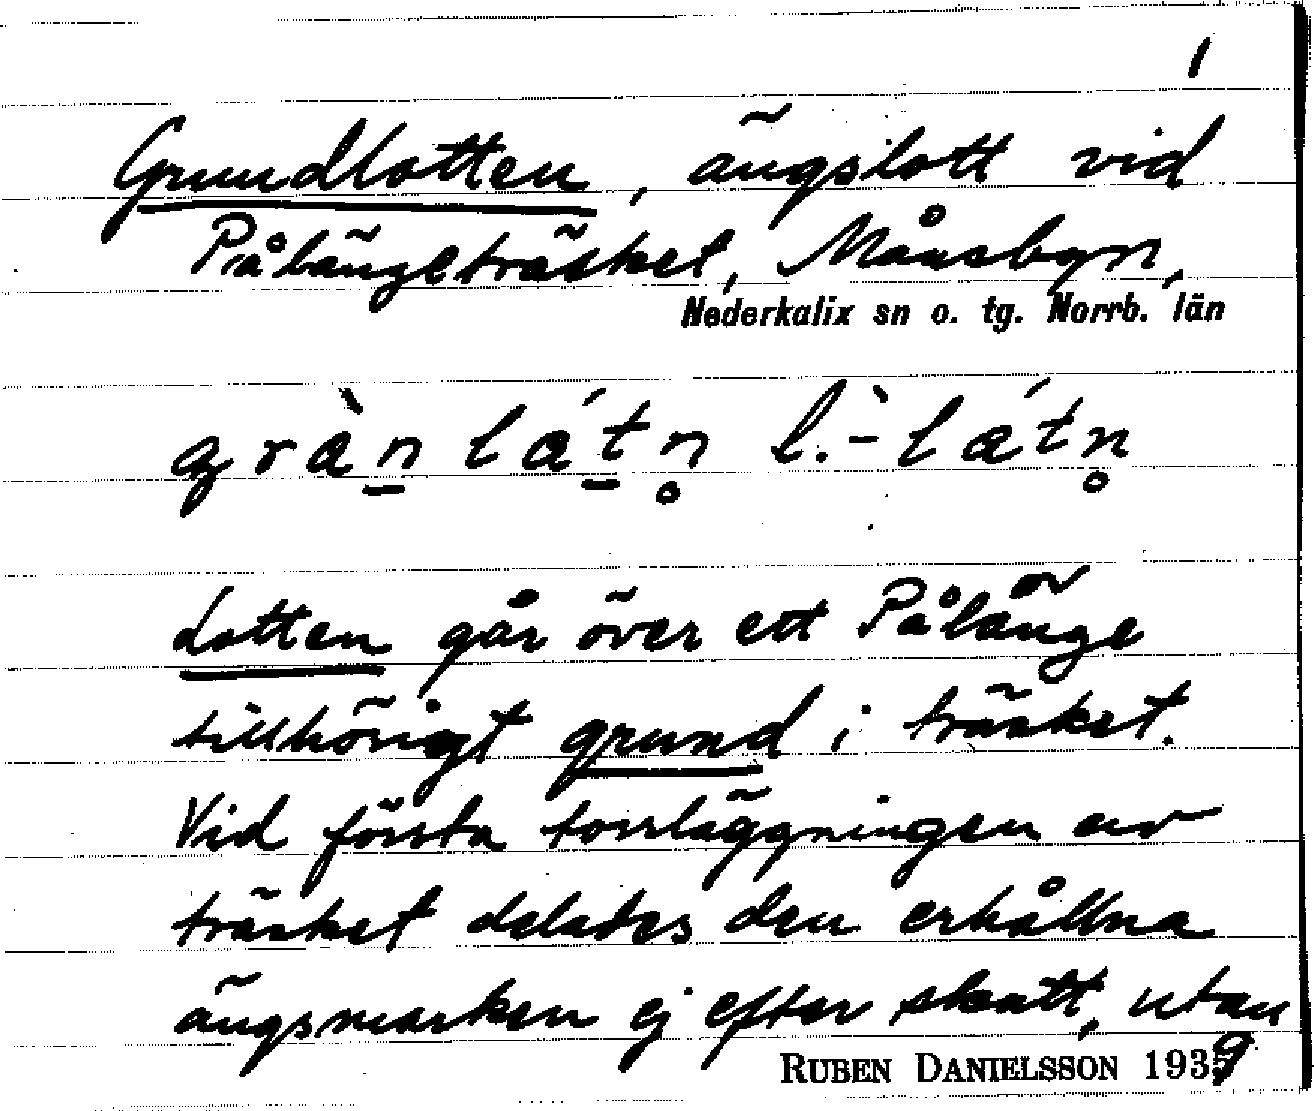 1
Grundlotten, ängslott vid
Pålängeträsket, Månsbyn,
Nederkalix sn o. tg. Norrb. län
gràn látn l. -látn
Lotten går över ett Pålänge
tillhörigt grund i träsket.
Vid första torrläggningen av
träsket delades den erhållna
ängsmarken ej efter skatt, utan
RUBEN DANIELSSON 1939